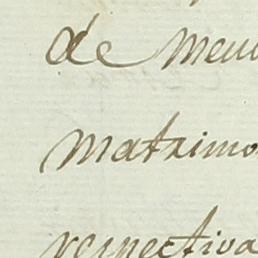 de meu
matrimo
respectiva